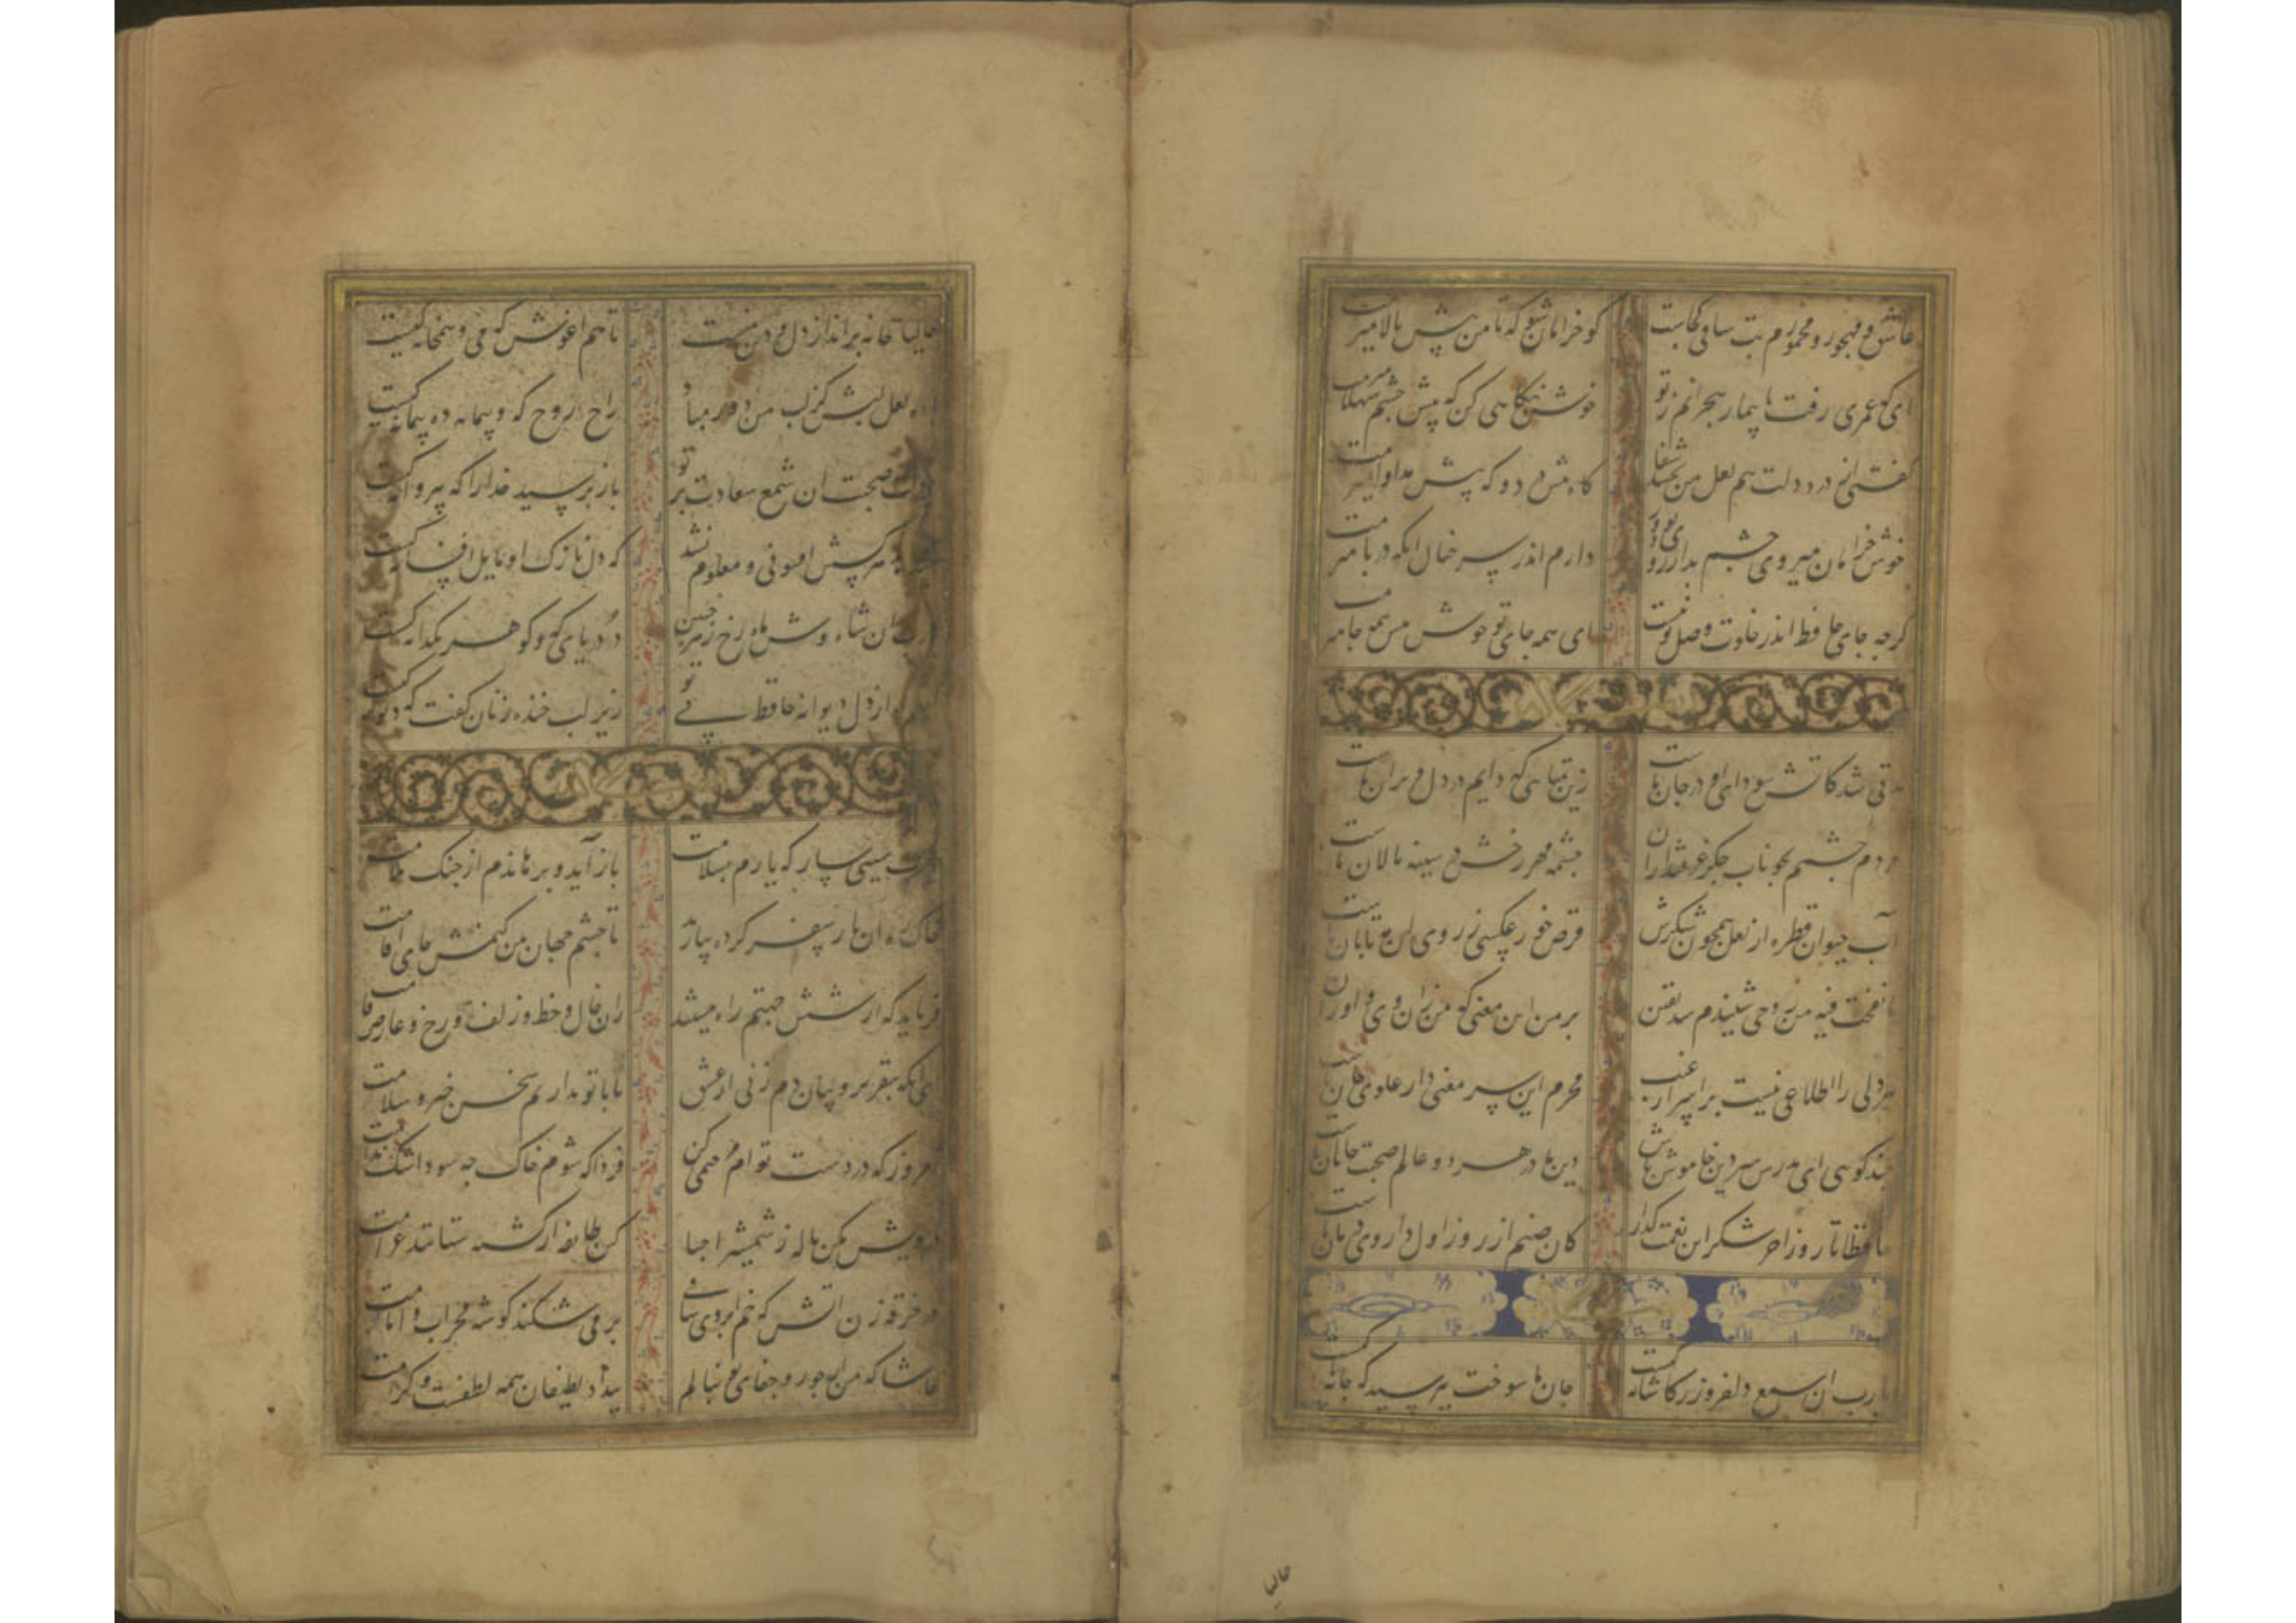 عاشق و مهجور و مخمورم بت ساقی کجاست کو خرامان شو که تا من پیش بالا میرمت
ای که عمری رفت تا بیمار هجرانم ز تو خوش نگاهی کن که پیش چشم شهلا میرمت
گفتی از درد دلت هم لعل من بخشد شفا گاه پیش درد و گه پیش مداوا میرمت
خوش خرامان میروی چشم بد از روی تو دور دارم اندر سر خیال آنکه در پا میرمت
گرچه جای حافظ اندر خلوت وصل تو نیست ای همه جای تو خوش پیش همه جا میرمت
مدتی شد کاتش سودای او در جان ماست زین تمنایی که دایم در دل ویران ماست
مردم چشمم بخوناب جگر غرقند از آن چشمه مهر رخش در سینه نالان ماست
آب حیوان قطره از لعل همچون شکرش قرص خور عکسی ز روی آن مه تابان ماست
تا نفخت فیه من روحی شنیدم شد یقین بر من این معنی که من زان وی و او زان ماست
هر دلی را اطلاعی نیست بر اسرار غیب محرم این سر معنی دار علوی جان ماست
چند گویی ای مدرس سر دین خاموش باش دین ما در هر دو عالم صحبت جانان ماست
حافظا تا روز آخر شکر این نعمت گذار کان صنم از روز اول داروی درمان ماست
یارب آن شمع دلفروز ز کاشانه کیست جان ما سوخت بپرسید که جانانه کیست
حالیا
حالیا خانه برانداز دل و دین منست تا هم آغوش که می و همخانه کیست
باده لعل لبش کز لب من دور مباد راح روح که و پیمانه ده پیمانه کیست
دولت صحبت آن شمع سعادت پرتو باز پرسید خدا را که بپروانه کیست
میدهد هر کسش افسونی و معلوم نشد که دل نازک او مایل افسانه کیست
یارب آن شاه وش ماه رخ زهره جبین در دریای که و گوهر یکدانه کیست
گفتم آه از دل دیوانه حافظ بی تو زیر لب خنده زنان گفت که دیوانه کیست
یارب سببی ساز که یارم بسلامت باز آید و برهاندم از جنگ ملامت
خاک ره آن یار سفر کرده بیارید تا چشم جهان بین کنمش جای اقامت
فریاد که از شش جهتم راه ببستند زان خال و خط و زلف و رخ و عارض و قامت
ای آنکه بتقریر و بیان دم زنی از عشق ما با تو نداریم سخن خیر و سلامت
امروز که در دست توام مرحمتی کن فردا که شوم خاک چه سود اشک ندامت
درویش مکن ناله ز شمشیر احبا کین طایفه از کشته ستانند غرامت
در خرقه زن آتش که خم ابروی ساقی بر می شکند گوشه محراب و امامت
حاشا که من از جور و جفای تو بنالم بیداد لطیفان همه لطفست و کرامت